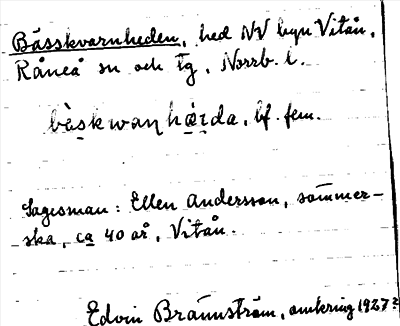 Båsskvarnheden, hed NV byn Vitån,
Råneå sn och tg, Norrb. l.
bàskwaṇhæ̀ṛda, bf. fem.
Sagesman: Ellen Andersson, sömmer-
ska, ca 40 år, Vitån.
Edvin Brännström, omkring 1927?